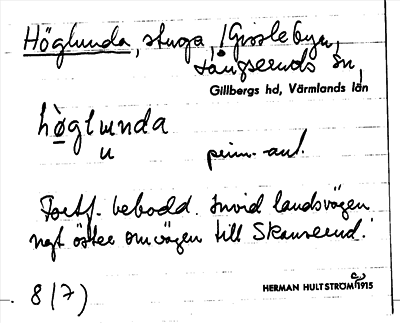 Höglunda, stuga, i Gisslebyn,
sn,
Gillbergs hd, Värmlands län
hòglunda
u prim. ant.
Fortf. bebodd. Invid landsvägen
ngt öster om vägen till
8/7)
HERMAN HULTSTRÖM 1915